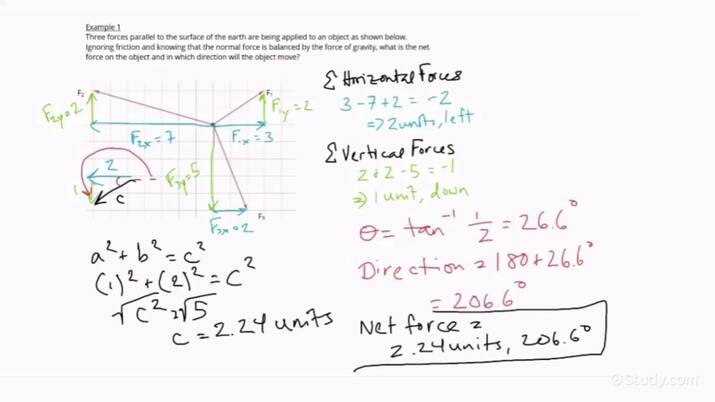 Example 1
Three forces parallel to the surface of the earth are being applied to an object as shown below.
Ignoring friction and knowing that the normal force is balanced by the force of gravity, what is the net
force on the object and in which direction will the object move?
F₂
F₁
F₂y=2
F₁y=2
F₂x=7
F₁x=3
F₃y=5
2
1
c
F₃x=2
F₃
a²+b²=c²
(1)²+(2)²=c²
√c²=√5
c=2.24 units
Σ Horizontal Forces
3-7+2=-2
=>2 units, left
Σ Vertical Forces
2+2-5=-1
=> 1 unit, down
θ=tan⁻¹ 1/2=26.6°
Direction=180+26.6°
=206.6°
Net force=
2.24 units, 206.6°
©Study.com